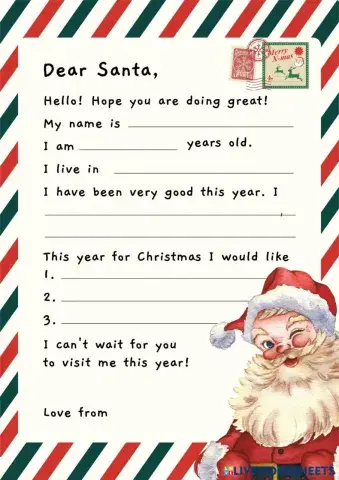 Merry
X-mas
Dear Santa,
Hello! Hope you are doing great!
My name is
I am years old.
I live in
I have been very good this year. I
,
This year for Christmas I would like
1.
2.
3.
I can't wait for you
to visit me this year!
Love from
LIVEWORKSHEETS